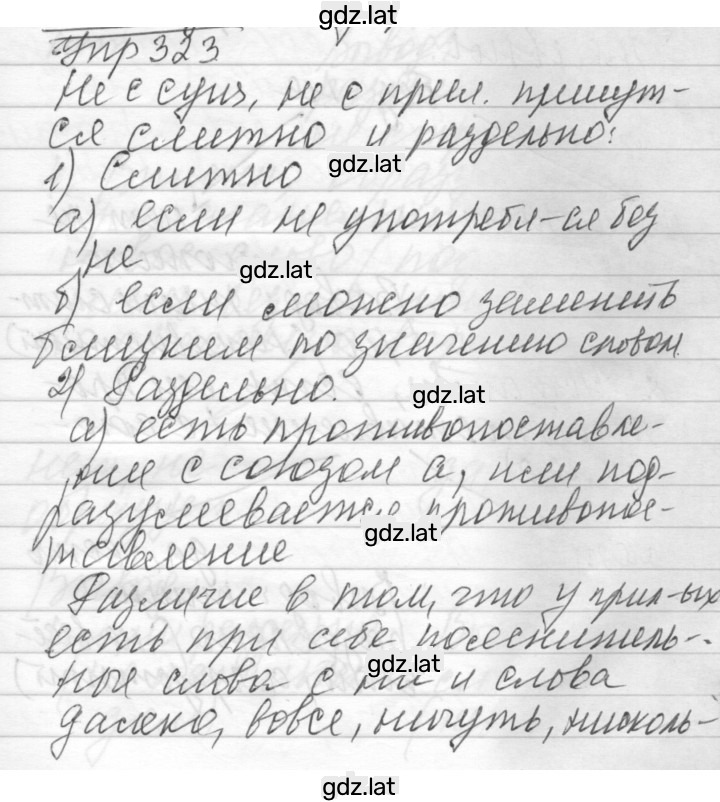 gdz.lat
Упр 323
Не с сущ, не с прил. пишут-
ся слитно и раздельно:
gdz.lat
1) Слитно
а) если не употребл-ся без
не
gdz.lat
б) если можно заменить
близким по значению словом.
2) Раздельно.
gdz.lat
а) есть противопоставле-
ние с союзом а, или под-
разумевается противопос-
gdz.lat
тавление
Различие в том, что у прил-ых
есть при себе пояснитель-
gdz.lat
ные слова с ни и слова
далеко, вовсе, ничуть, нисколь-
gdz.lat